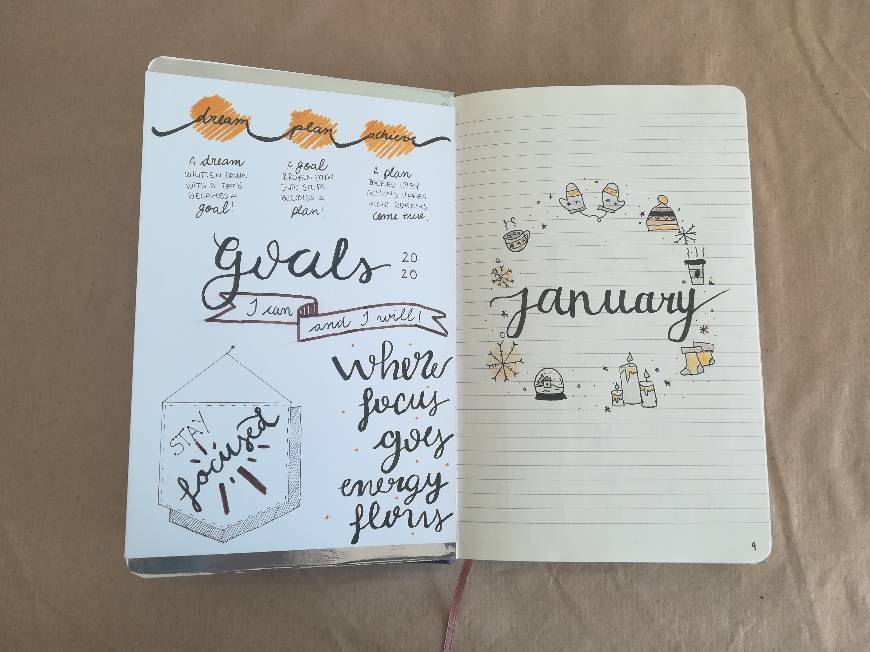 dream plan achieve
A dream
WRITTEN DOWN
WITH A DATE
BECOMES A
goal!
A goal
BROKEN DOWN
INTO STEPS
BECOMES A
plan!
A plan
BACKED BY
ACTIONS MAKES
YOUR DREAMS
come true.
Goals
20
20
I can
and I will!
STAY
focused
where
focus
goes
energy
flows
january